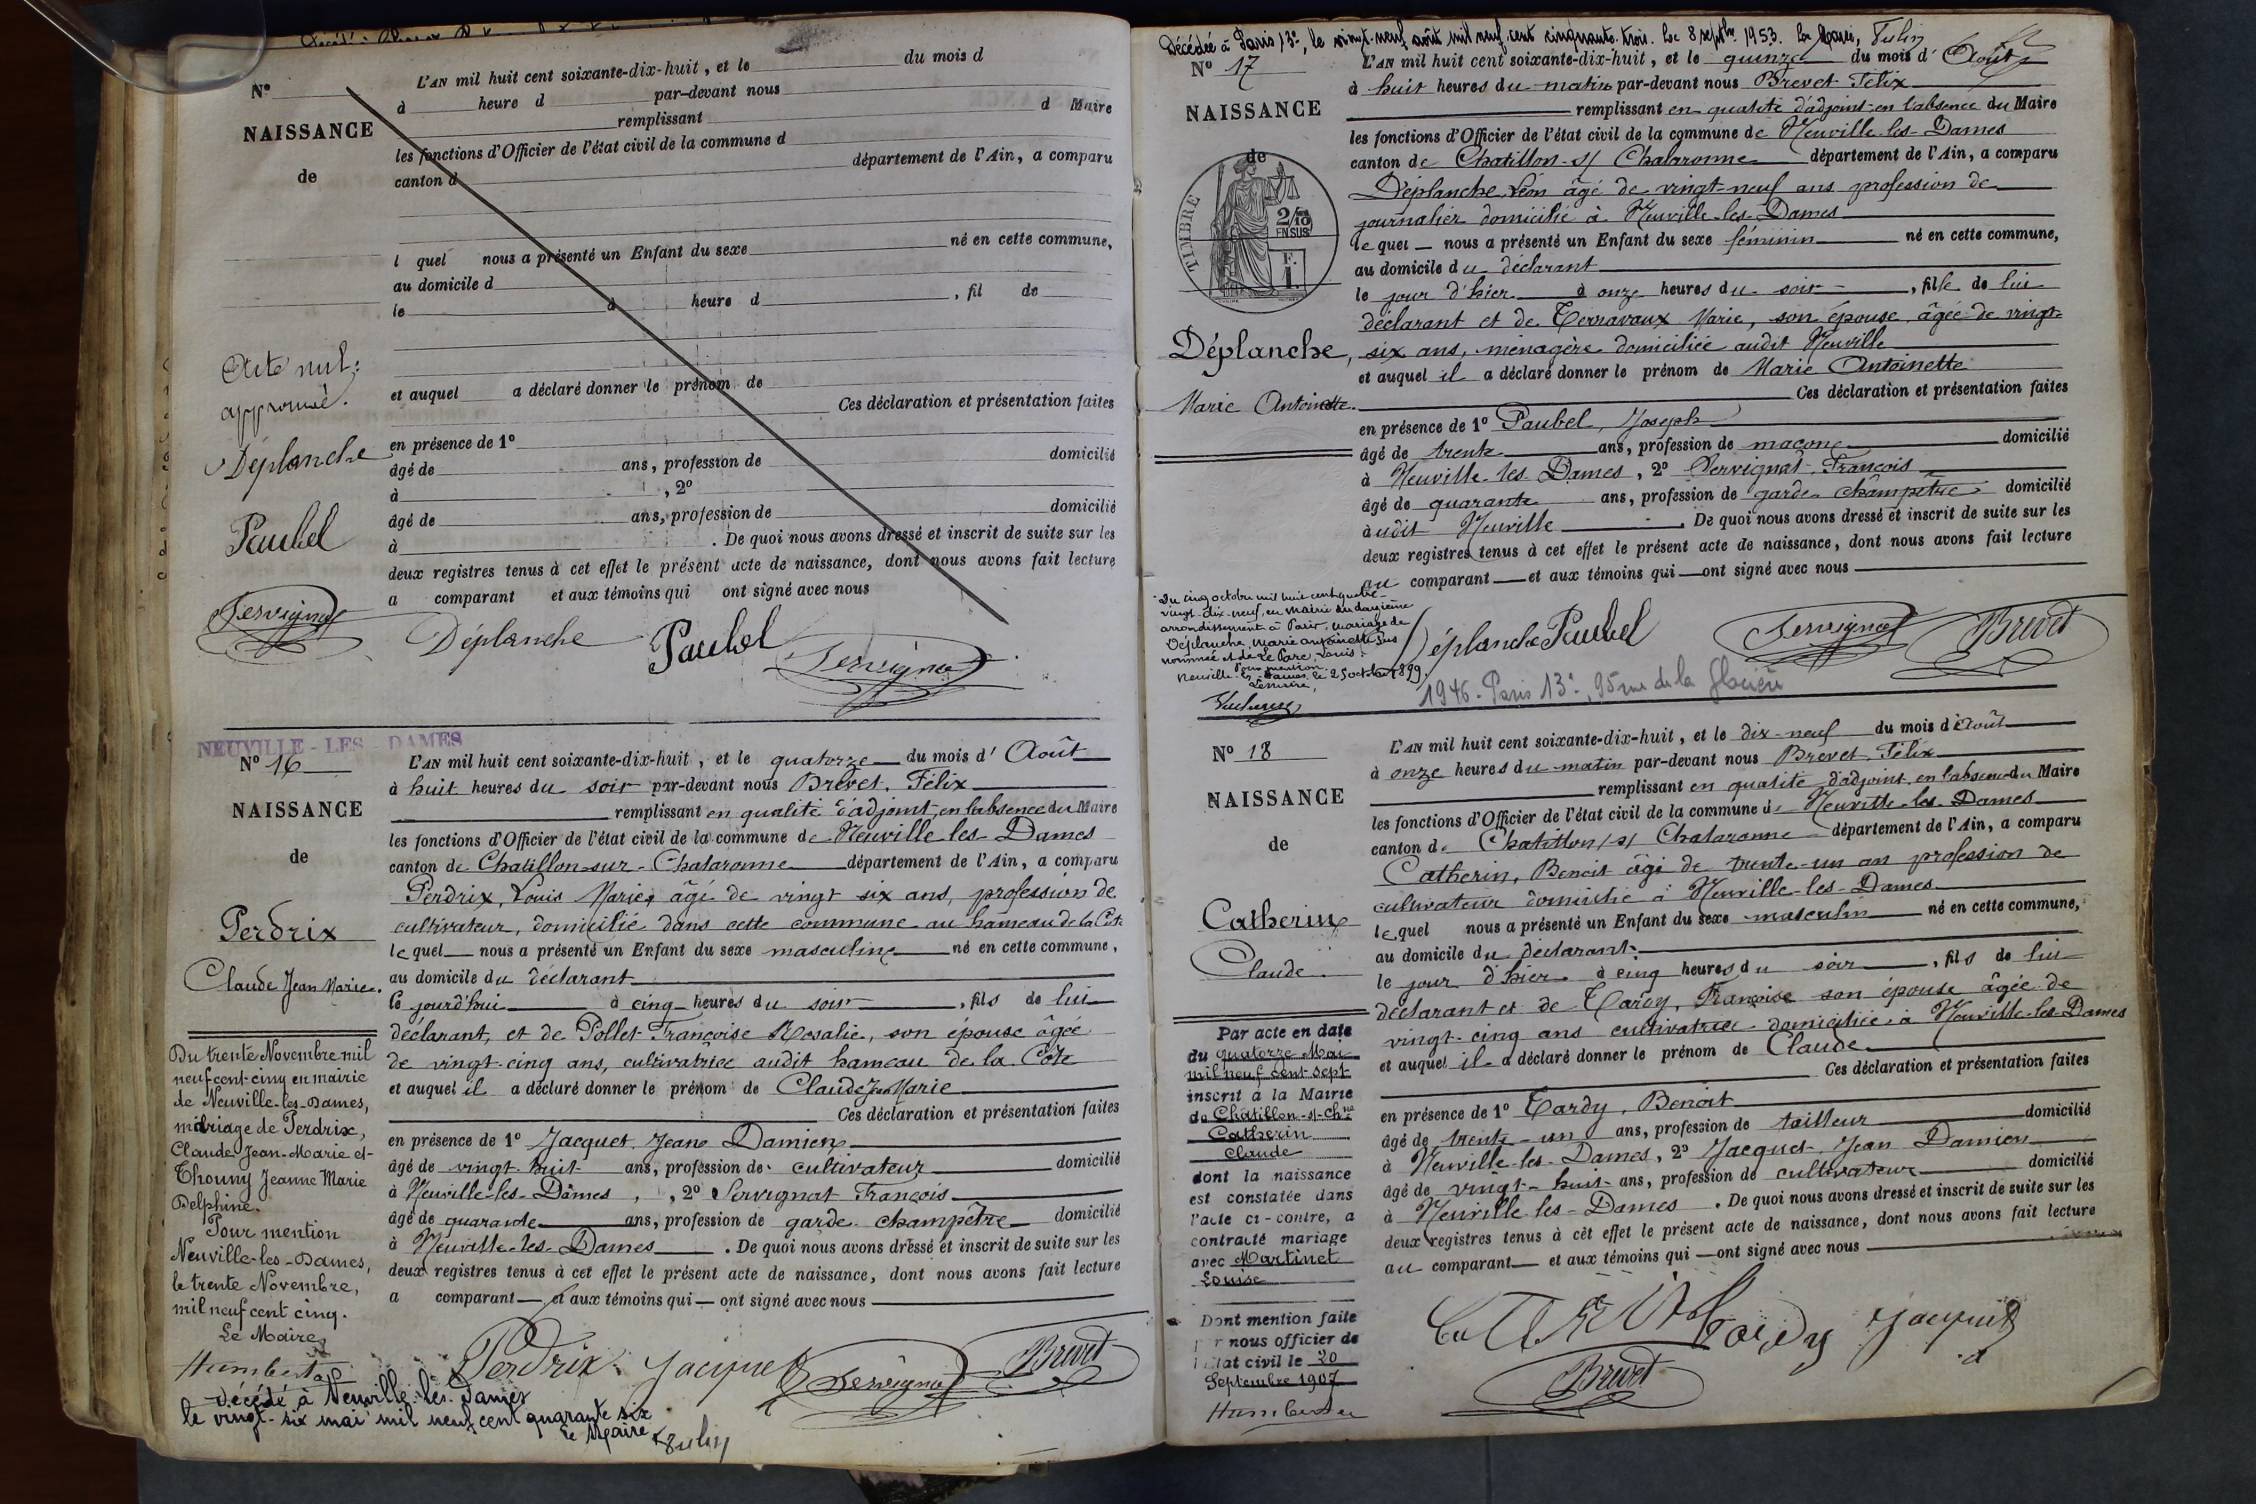 N°
NAISSANCE
de
L'AN mil huit cent soixante-dix-huit, et le du mois d
à heure d par-devant nous
remplissant d Maire
les fonctions d'Officier de l'état civil de la commune d
canton d département de l'Ain, a comparu
l quel nous a présenté un Enfant du sexe né en cette commune,
au domicile d
le à heure d , fil de
et auquel a déclaré donner le prénom de
Ces déclaration et présentation faites
en présence de 1°
âgé de ans, profession de domicilié
à , 2°
âgé de ans, profession de domicilié
à . De quoi nous avons dressé et inscrit de suite sur les
deux registres tenus à cet effet le présent acte de naissance, dont nous avons fait lecture
a comparant et aux témoins qui ont signé avec nous
Acte nul:
approuvé.
Déplanche
Paubel
Servignat
Déplanche Paubel Servignat
NEUVILLE-LES-DAMES
N° 16
NAISSANCE
de
Perdrix
Claude Jean Marie.
L'AN mil huit cent soixante-dix-huit, et le quatorze du mois d'Août
à huit heures du soir par-devant nous Brevet, Félix
remplissant en qualité d'adjoint, en l'absence du Maire
les fonctions d'Officier de l'état civil de la commune de Neuville les Dames
canton de Chatillon-sur-Chalaronne département de l'Ain, a comparu
Perdrix, Louis Marie, âgé de vingt six ans, profession de
cultivateur, domicilié dans cette commune au hameau de la Cote
lequel nous a présenté un Enfant du sexe masculine né en cette commune,
au domicile du déclarant
le jourd'hui à cinq heures du soir , fils de lui
déclarant, et de Pollet Françoise Rosalie, son épouse âgée
de vingt-cinq ans, cultivatrice audit hameau de la Cote
et auquel il a déclaré donner le prénom de Claude Jean Marie
Ces déclaration et présentation faites
en présence de 1° Jacquet Jean Damien
âgé de vingt-huit ans, profession de cultivateur domicilié
à Neuville-les-Dames, , 2° Servignat François
âgé de quarante ans, profession de garde-champêtre domicilié
à Neuville-les-Dames . De quoi nous avons dressé et inscrit de suite sur les
deux registres tenus à cet effet le présent acte de naissance, dont nous avons fait lecture
a comparant et aux témoins qui ont signé avec nous
Perdrix Jacquet Servignat Brevet
Du trente Novembre mil
neuf cent cinq en mairie
de Neuville-les-Dames,
mariage de Perdrix,
Claude Jean-Marie et
Thouny Jeanne Marie
Delphine.
Pour mention
Neuville-les-Dames,
le trente Novembre,
mil neuf cent cinq.
Le Maire,
Décédé à Neuville-les-Dames
le vingt-six mai mil neuf cent quarante six
Le Maire
Décédée à Paris 13e, le vingt-neuf août mil neuf cent cinquante-trois. Le 8 septbre 1953. Le Maire,
N° 17
NAISSANCE
de
TIMBRE
2/10
EN SUS
F.
1.
Déplanche,
Marie Antoinette.
L'AN mil huit cent soixante-dix-huit, et le quinze du mois d'Août
à huit heures du matin par-devant nous Brevet Félix
remplissant en qualité d'adjoint en l'absence du Maire
les fonctions d'Officier de l'état civil de la commune de Neuville-les-Dames
canton de Chatillon-s/ Chalaronne département de l'Ain, a comparu
Déplanche Léon âgé de vingt-neuf ans profession de
journalier domicilié à Neuville-les-Dames
lequel nous a présenté un Enfant du sexe féminin né en cette commune,
au domicile du déclarant
le jour d'hier à onze heures du soir , fille de lui
déclarant et de Terravaux Marie, son épouse âgée de vingt-
six ans, ménagère domiciliée audit Neuville
et auquel il a déclaré donner le prénom de Marie Antoinette
Ces déclaration et présentation faites
en présence de 1° Paubel, Joseph
âgé de trente ans, profession de maçon domicilié
à Neuville-les-Dames, 2° Servignat François
âgé de quarante ans, profession de garde-champêtre domicilié
à audit Neuville . De quoi nous avons dressé et inscrit de suite sur les
deux registres tenus à cet effet le présent acte de naissance, dont nous avons fait lecture
au comparant et aux témoins qui ont signé avec nous
Du cinq octobre mil huit cent quatre-
vingt-dix-neuf, en mairie du
arrondissement à Paris, mariage de
Déplanche, Marie Antoinette sus
nommée et de Le Parc, Louis.
Pour mention.
Neuville-les-Dames, le 25 octobre 1899.
Le Maire,
Déplanche Paubel Servignat Brevet
1946. Paris 13e, 95 rue de la Glacière
N° 18
NAISSANCE
de
Catherin
Claude
L'AN mil huit cent soixante-dix-huit, et le dix-neuf du mois d'Août
à onze heures du matin par-devant nous Brevet Félix
remplissant en qualité d'adjoint, en l'absence du Maire
les fonctions d'Officier de l'état civil de la commune de Neuville-les-Dames
canton de Chatillon/s/ Chalaronne département de l'Ain, a comparu
Catherin, Benoit âgé de trente-un an profession de
cultivateur domicilié à Neuville-les-Dames
lequel nous a présenté un Enfant du sexe masculin né en cette commune,
au domicile du déclarant
le jour d'hier à cinq heures du soir , fils de lui
déclarant et de Tardy, Françoise son épouse âgée de
vingt-cinq ans cultivatrice domiciliée à Neuville-les-Dames
et auquel il a déclaré donner le prénom de Claude
Ces déclaration et présentation faites
en présence de 1° Tardy, Benoit
âgé de trente-un ans, profession de tailleur domicilié
à Neuville-les-Dames, 2° Jacquet, Jean Damien
âgé de vingt-huit ans, profession de cultivateur domicilié
à Neuville-les-Dames . De quoi nous avons dressé et inscrit de suite sur les
deux registres tenus à cet effet le présent acte de naissance, dont nous avons fait lecture
au comparant et aux témoins qui ont signé avec nous
Par acte en date
du quatorze Mai
mil neuf cent sept
inscrit à la Mairie
de Châtillon-s-Chne
Catherin
Claude
dont la naissance
est constatée dans
l'acte ci-contre, a
contracté mariage
avec Martinet
Louise
Dont mention faite
par nous officier de
l'Etat civil le 20
Septembre 1907
Tardy Jacquet
Brevet